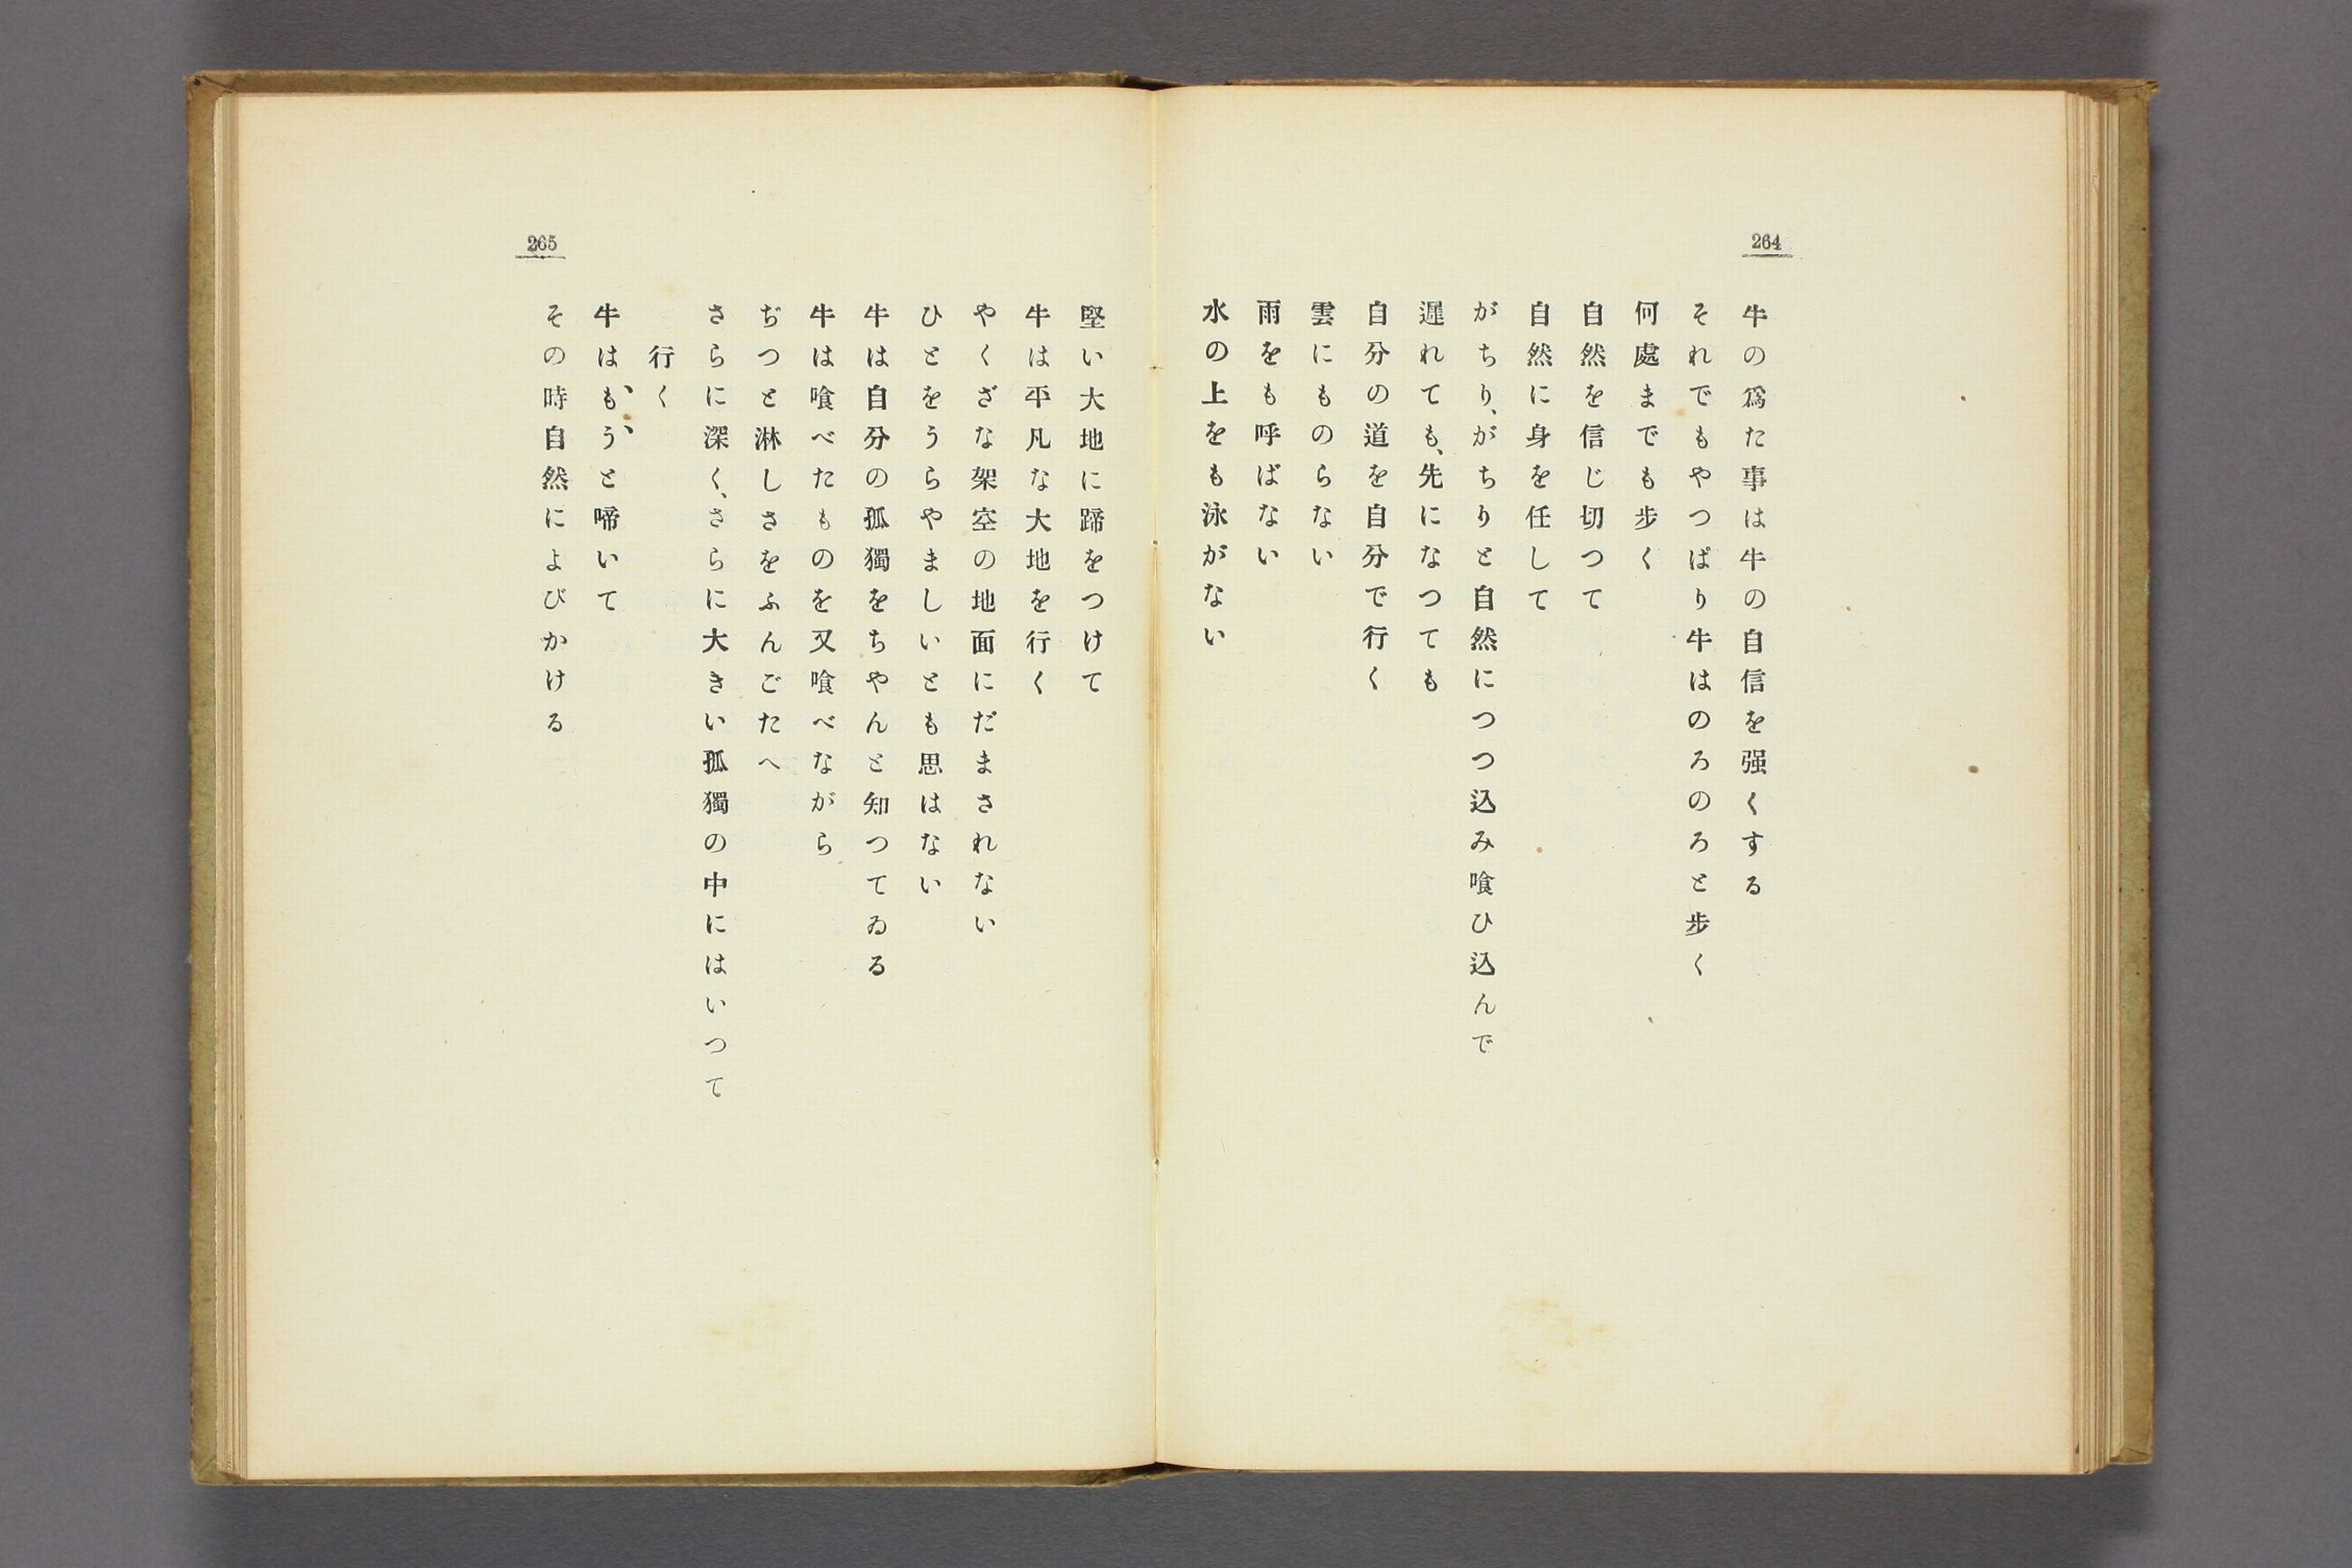 264
牛の爲た事は牛の自信を强くする
それでもやつぱり牛はのろのろと步く
何處までも步く
自然を信じ切つて
自然に身を任して
がちり、がちりと自然につつ込み喰ひ込んで
遲れても、先になつても
自分の道を自分で行く
雲にものらない
雨をも呼ばない
水の上をも泳がない
265
堅い大地に蹄をつけて
牛は平凡な大地を行く
やくざな架空の地面にだまされない
ひとをうらやましいとも思はない
牛は自分の孤獨をちやんと知つてゐる
牛は喰べたものを又喰べながら
ぢつと淋しさをふんごたへ
さらに深く、さらに大きい孤獨の中にはいつて
行く
牛はもうと啼いて
その時自然によびかける